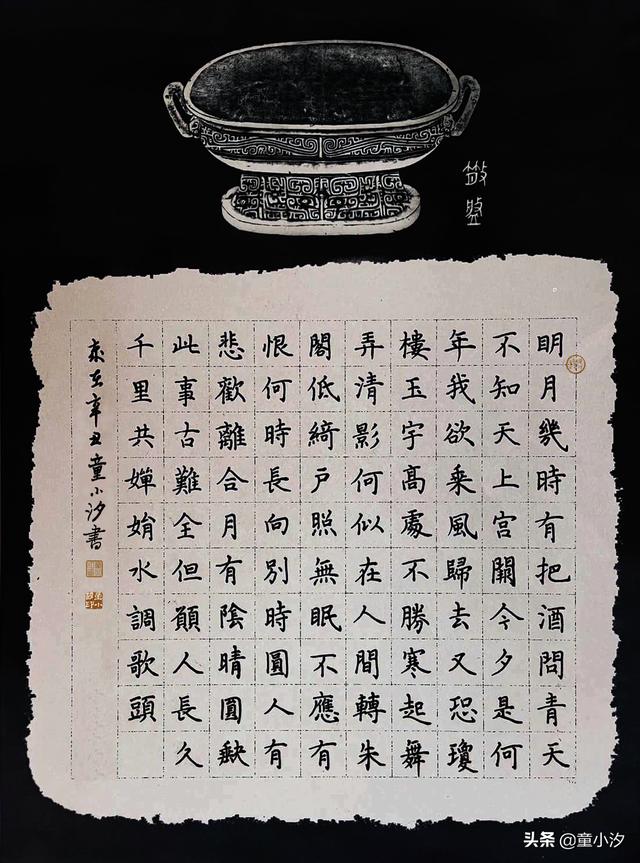 明月幾時有把酒問青天
不知天上宮闕今夕是何
年我欲乘風歸去又恐瓊
樓玉宇高處不勝寒起舞
弄清影何似在人間轉朱
閣低綺戶照無眠不應有
恨何時長向別時圓人有
悲歡離合月有陰晴圓缺
此事古難全但願人長久
千里共嬋娟水調歌頭
歲在辛丑童小汐書
头条 @童小汐